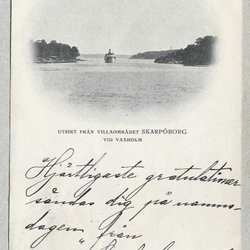 UTSIKT FRÅN VILLAOMRÅDET SKARPÖBORG
VID VAXHOLM
Hjärtligaste gratulationer
sändas dig på namns-
dagen från